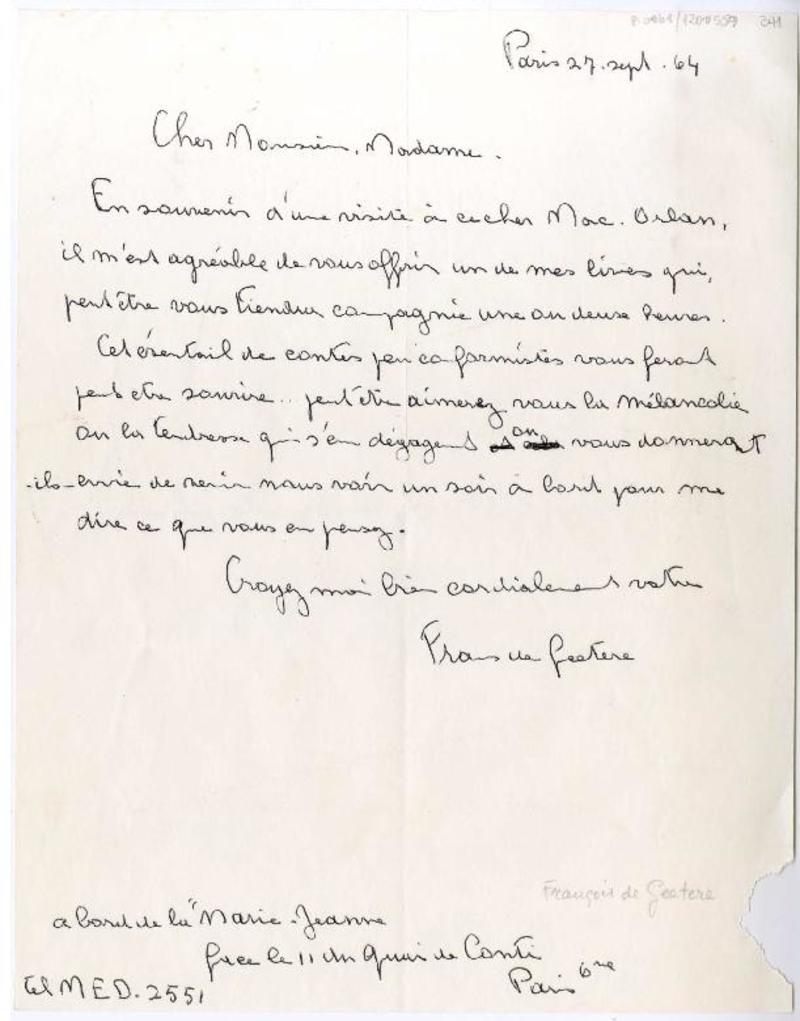 241
Paris 27. sept. 64
Cher Monsieur, Madame.
En souvenir d'une visite à ce cher Mac. Orlan,
il m'est agréable de vous offrir un de mes livres qui,
peut être vous tiendra compagnie une ou deux heures.
Cet éventail de contes peu conformistes vous feront
peut etre sourire.. peut être aimerez vous la mélancolie
ou la tendresse qui s'en dégagent ou vous donneront
-ils envie de venir nous voir un soir à bord pour me
dire ce que vous en pensez.
Croyez moi bien cordialement votre
Frans de Geetere
François de Geetere
a bord de la "Marie-Jeanne
face le 11 du Quai de Conti
Paris 6me
Tel MED. 2551